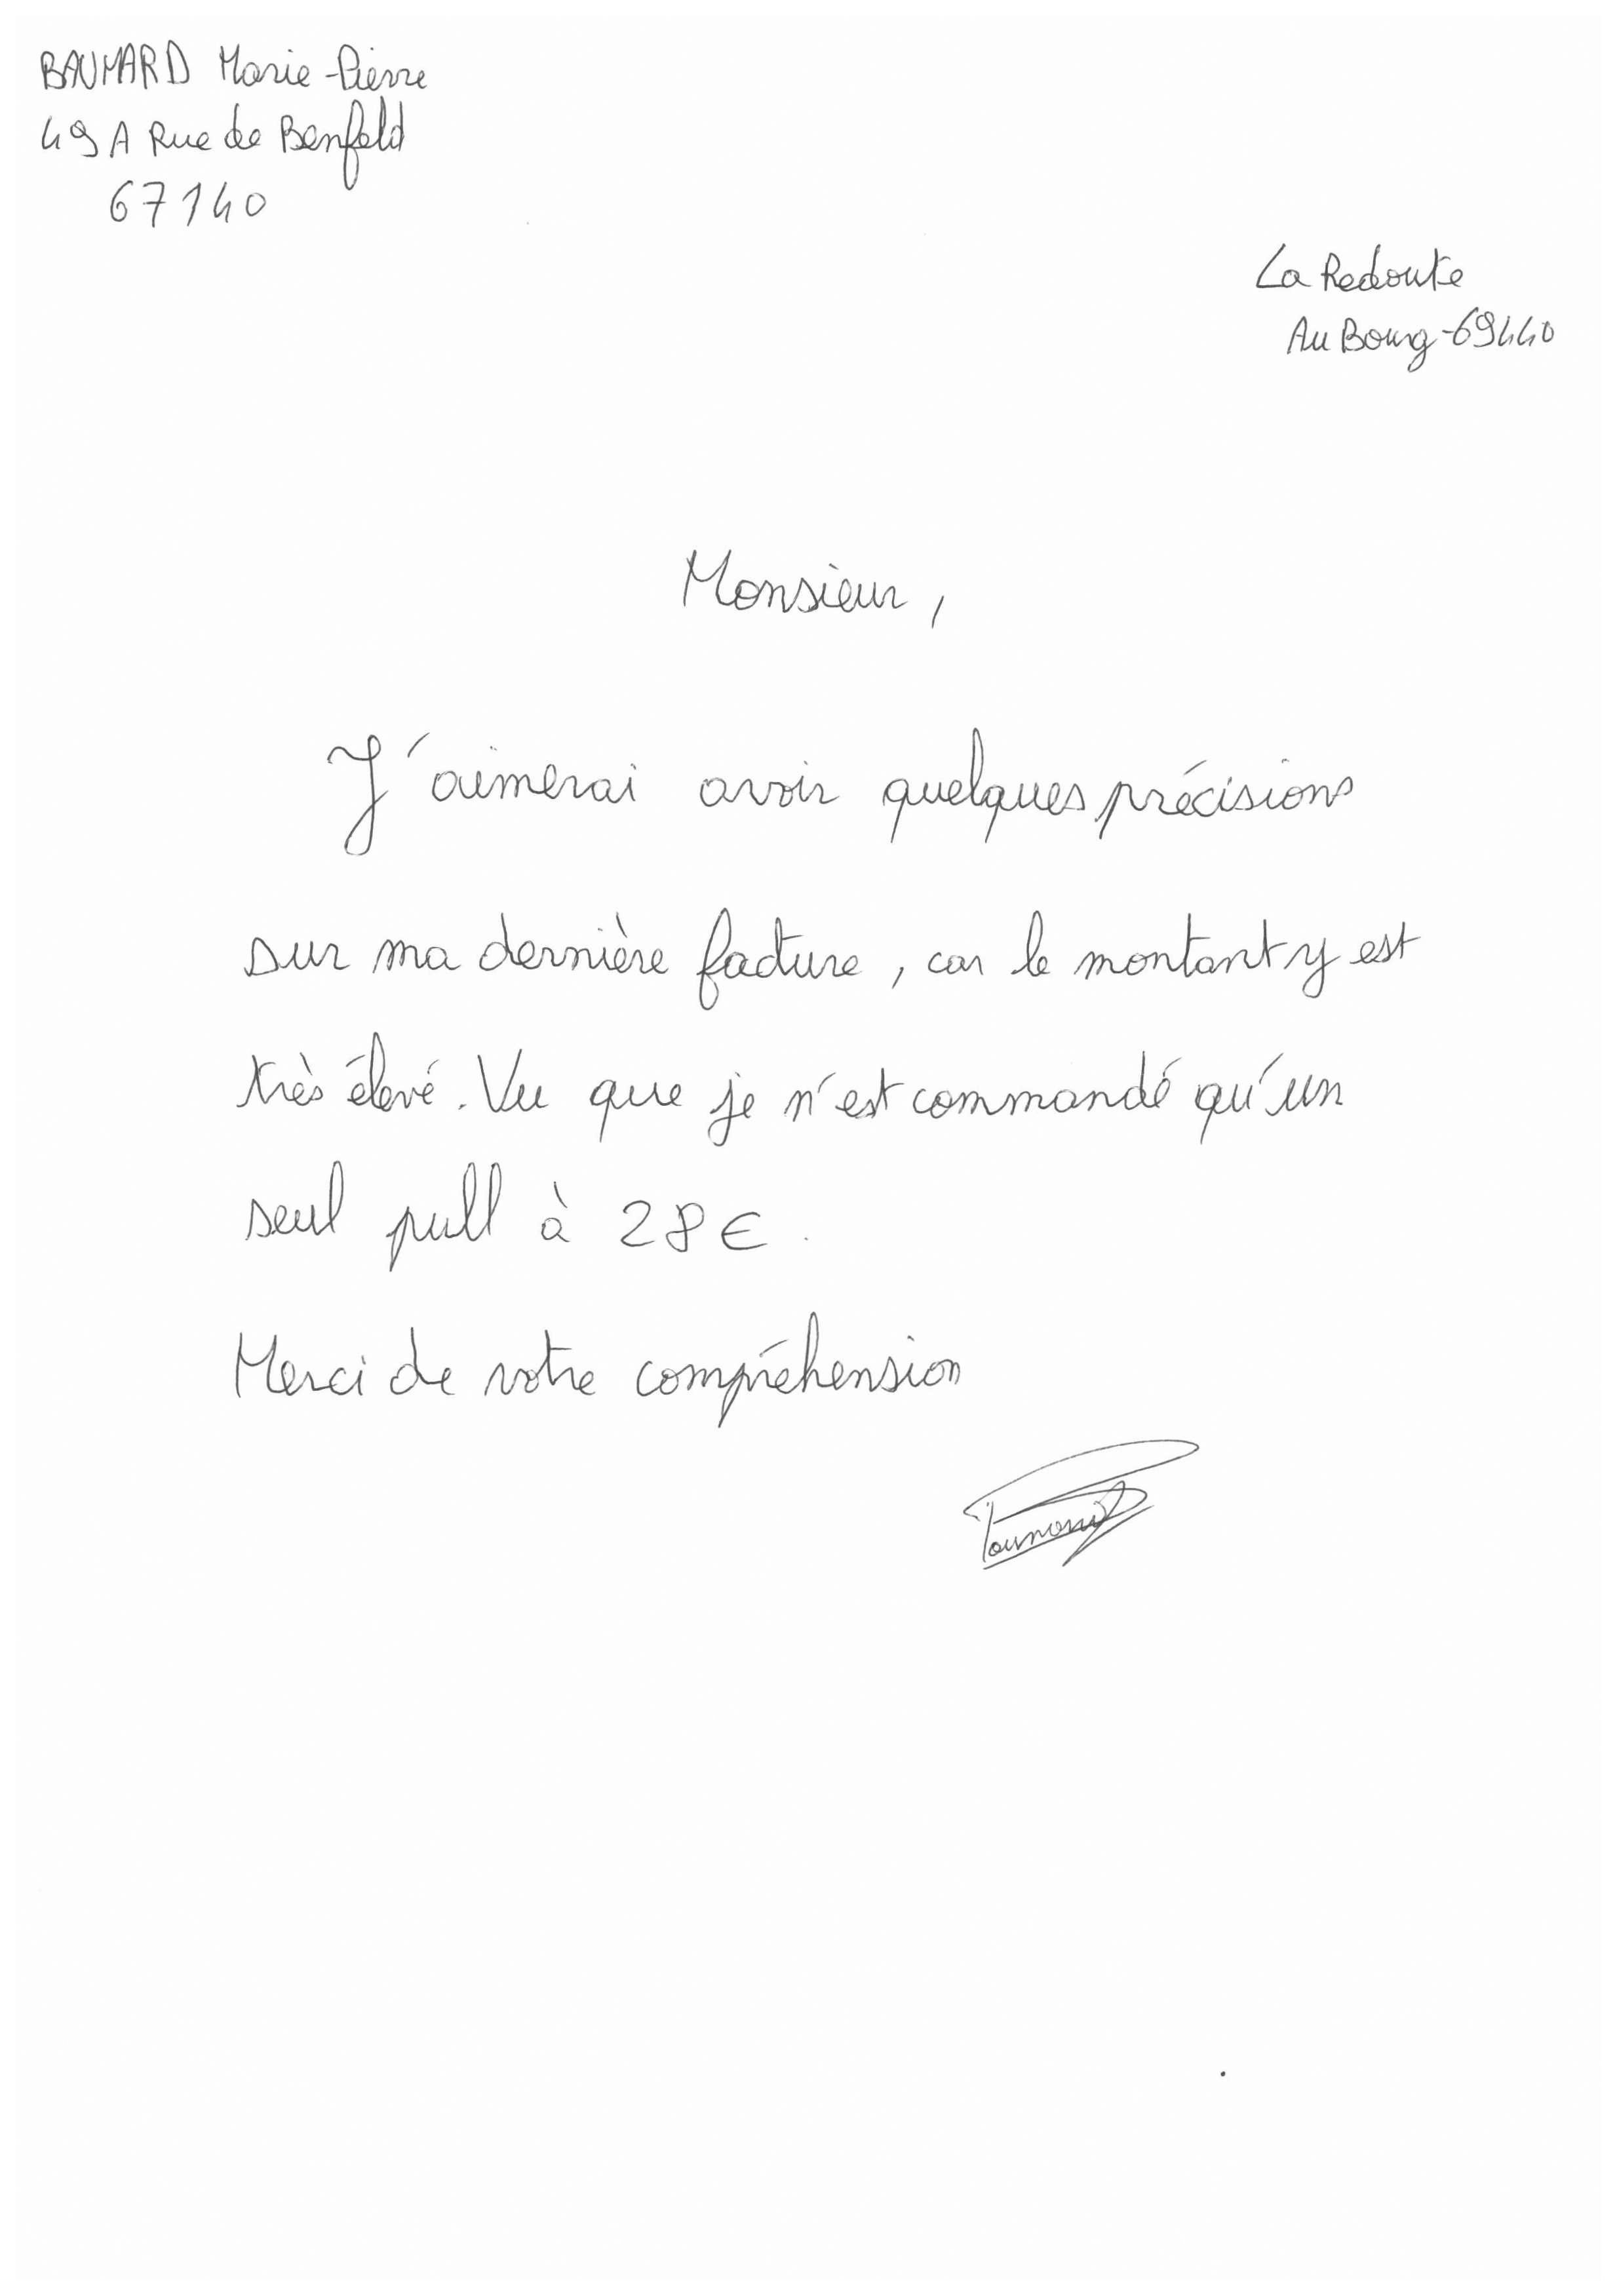 BAUMARD Marie-Pierre
49 A Rue de Benfeld
67140
La Redoute
Au Bourg-69440
Monsieur,
J'aimerai avoir quelques précisions
sur ma dernière facture, car le montant y est
très élevé. Vu que je n'est commandé qu'un
seul pull à 28€.
Merci de votre compréhension